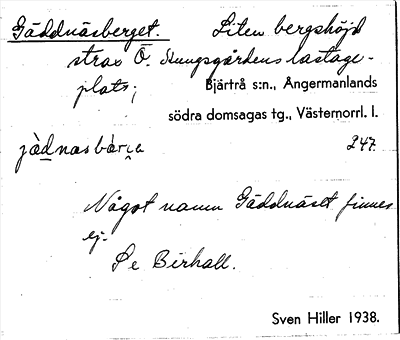 Gäddnäsberget. Liten bergshöjd
strax Ö. Kungsgårdens lastage-
plats;
Bjärtrå s:n., Ångermanlands
södra domsagas tg., Västernorrl. l.
247.
Något namn Gäddnäset finnes
ej.
Se Birhall.
Sven Hiller 1938.